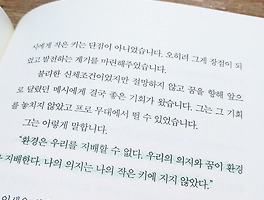 시에게 작은 키는 단점이 아니었습니다. 오히려 그게 장점이 되
었고 발전하는 계기를 마련해주었습니다.
불리한 신체조건이었지만 절망하지 않고 꿈을 향해 앞으
로 달렸던 메시에게 결국 좋은 기회가 왔습니다. 그는 그 기회
를 놓치지 않았고 프로 무대에서 뛸 수 있었습니다.
그는 이렇게 말합니다.
"환경은 우리를 지배할 수 없다. 우리의 의지와 꿈이 환경
지배한다. 나의 의지는 나의 작은 키에 지지 않았다."